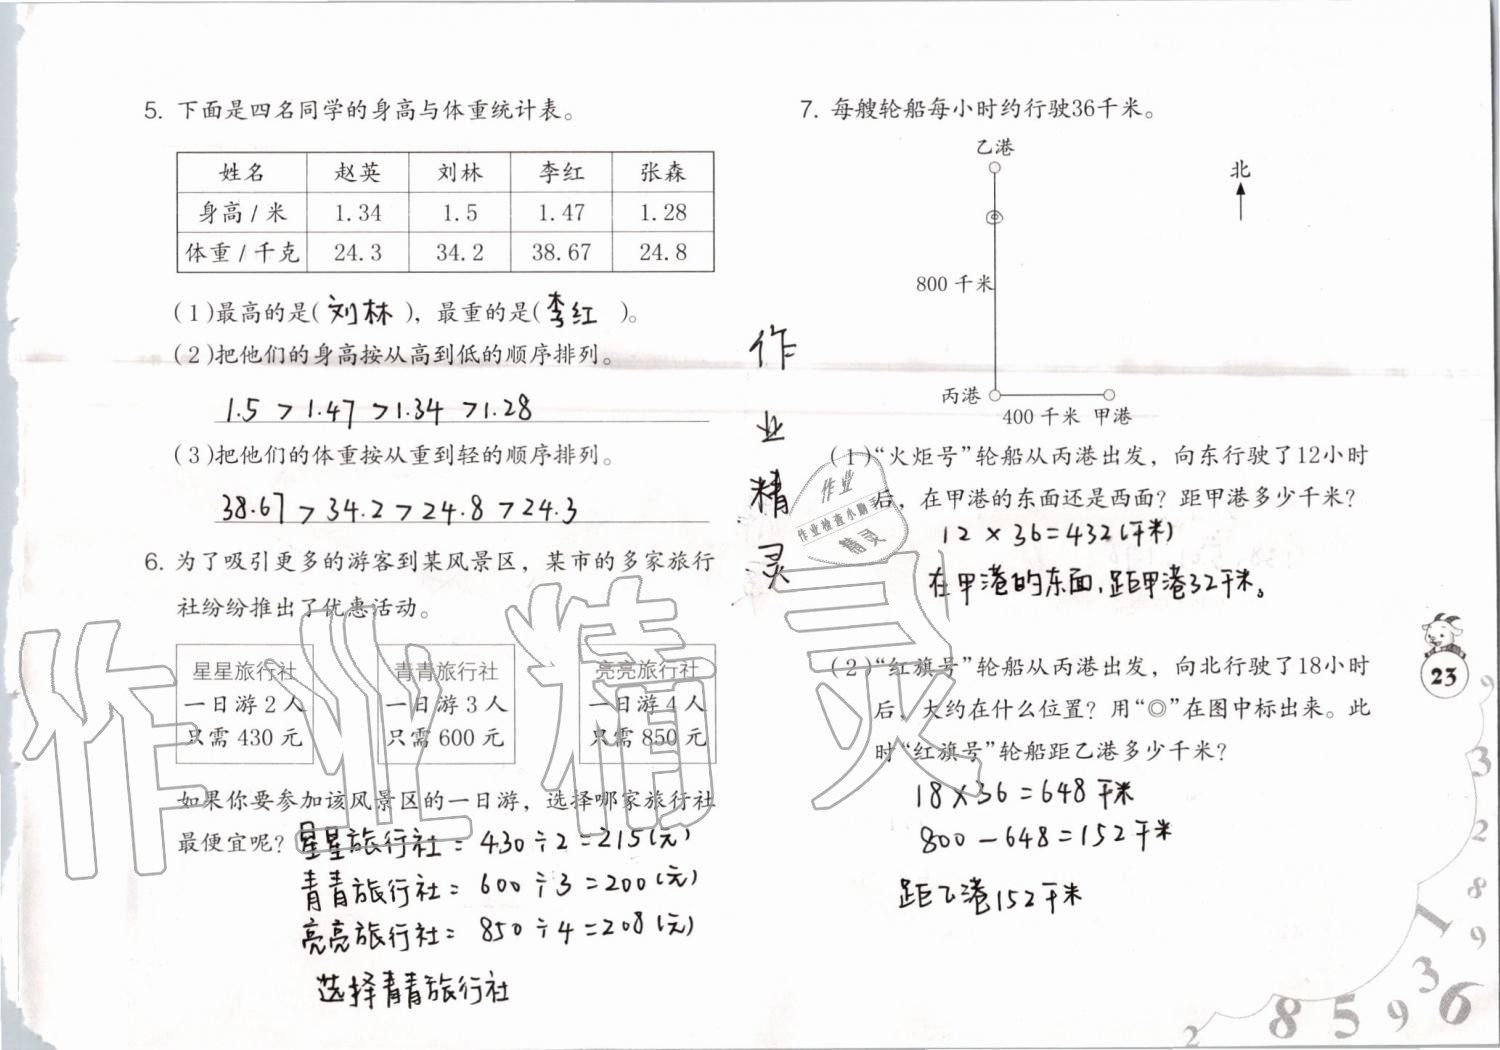 5. 下面是四名同学的身高与体重统计表。
姓名 赵英 刘林 李红 张森
身高/米 1.34 1.5 1.47 1.28
体重/千克 24.3 34.2 38.67 24.8
(1)最高的是(刘林),最重的是(李红)。
(2)把他们的身高按从高到低的顺序排列。
1.5>1.47>1.34>1.28
(3)把他们的体重按从重到轻的顺序排列。
38.67>34.2>24.8>24.3
6. 为了吸引更多的游客到某风景区,某市的多家旅行
社纷纷推出了优惠活动。
星星旅行社
一日游2人
只需430元
青青旅行社
一日游3人
只需600元
亮亮旅行社
一日游4人
只需850元
如果你要参加该风景区的一日游,选择哪家旅行社
最便宜呢?星星旅行社=430÷2=215(元)
青青旅行社=600÷3=200(元)
亮亮旅行社=850÷4=208(元)
选择青青旅行社
作业精灵
作业精灵
7. 每艘轮船每小时约行驶36千米。
乙港
北
800千米
丙港
400千米 甲港
(1)“火炬号”轮船从丙港出发,向东行驶了12小时
后,在甲港的东面还是西面?距甲港多少千米?
作业
作业检查小助手
精灵
12×36=432(千米)
在甲港的东面,距甲港32千米。
(2)“红旗号”轮船从丙港出发,向北行驶了18小时
后,大约在什么位置?用“◎”在图中标出来。此
时“红旗号”轮船距乙港多少千米?
18×36=648千米
800-648=152千米
距乙港152千米
23
9
3
2
8
1
9
3
6
2
8
5
9